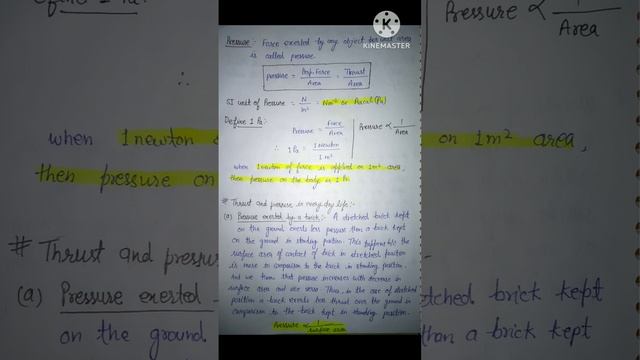 KINEMASTER
Pressure :- Force exerted by any object per unit area
is called pressure.
pressure = Perp. Force / Area = Thrust / Area
SI unit of Pressure = N / m² = Nm⁻² or Pascal (Pa)
Define 1 Pa :-
Pressure = Force / Area
Pressure ∝ 1 / Area
∴ 1 Pa = 1 Newton / 1 m²
when 1 newton of force is applied on 1m² area,
then pressure on the body is 1 Pa
# Thrust and pressure in every day life :-
(a) Pressure exerted by a brick :- A stretched brick kept
on the ground exerts less pressure than a brick kept
on the ground in standing position. This happens b/c the
surface area of contact of brick in stretched position
is more in comparison to the brick in standing position.
And we know that pressure increases with decrease in
surface area and vice versa. Thus, in the case of stretched
position a brick exerts less thrust over the ground in
comparison to the brick kept in standing position.
Pressure ∝ 1 / surface area
Define 1 Pa :-
Pressure ∝ 1 / Area
∴
when 1 newton
on 1m² area,
then pressure on
# Thrust and pressure
(a) Pressure exerted
stretched brick kept
on the ground
than a brick kept